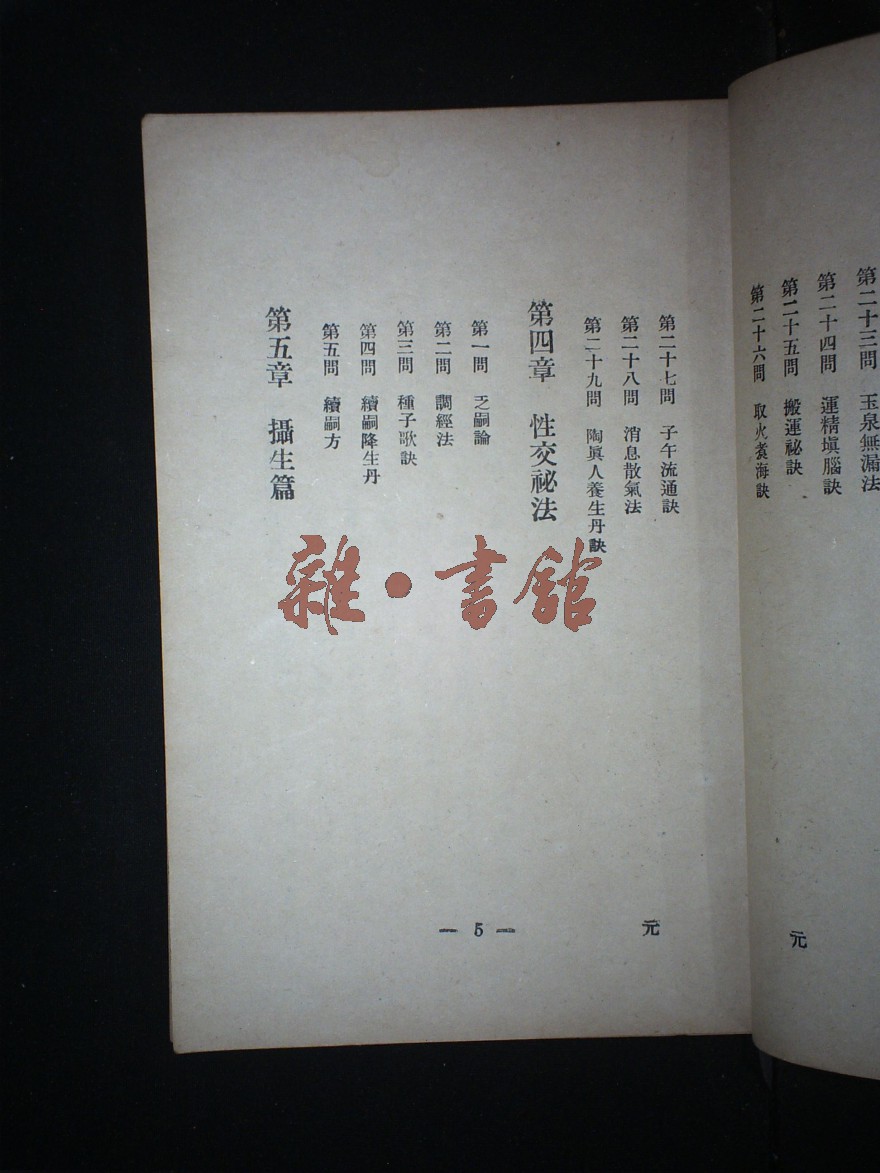 第二十三問　玉泉無漏法
第二十四問　運精塡腦訣
第二十五問　搬運祕訣
第二十六問　取火煮海訣
元
第二十七問　子午流通訣
第二十八問　消息散氣法
第二十九問　陶眞人養生丹訣
第四章　性交祕法
第一問　乏嗣論
第二問　調經法
第三問　種子歌訣
第四問　續嗣降生丹
第五問　續嗣方
第五章　攝生篇
元
— 5 —
雜·書館